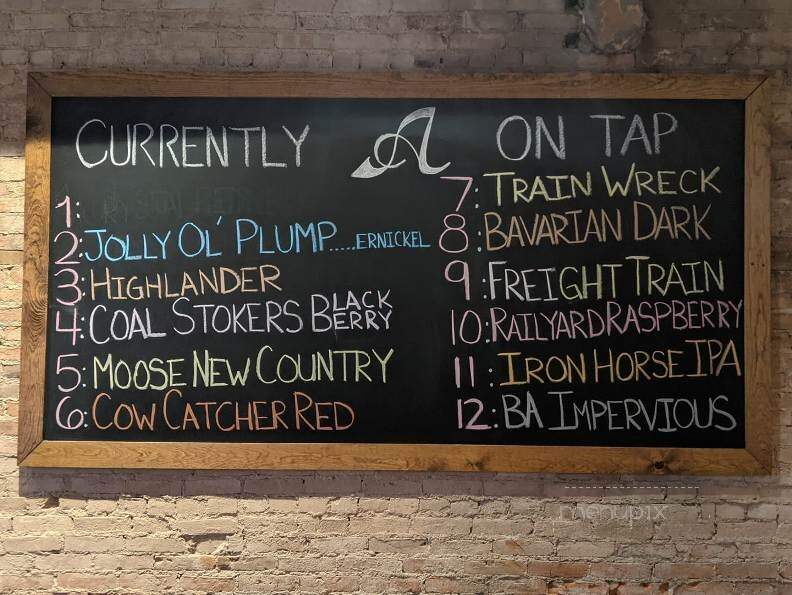 CURRENTLY A ON TAP
1:
2: JOLLY OL' PLUMP.....ERNICKEL
3: HIGHLANDER
4: COAL STOKERS BLACK BERRY
5: MOOSE NEW COUNTRY
6: COW CATCHER RED
7: TRAIN WRECK
8: BAVARIAN DARK
9: FREIGHT TRAIN
10: RAILYARD RASPBERRY
11: IRON HORSE IPA
12: BA IMPERVIOUS
menupix